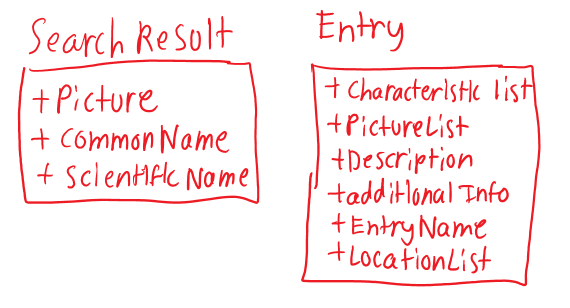 Search Result
+ Picture
+ CommonName
+ Scientific Name
Entry
+ Characteristic list
+ PictureList
+ Description
+ additional Info
+ EntryName
+ LocationList